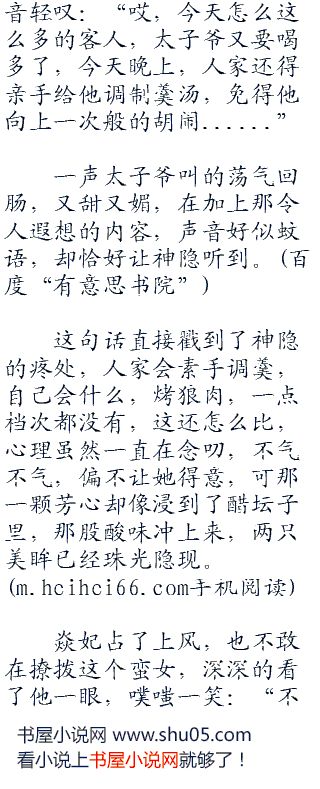 音轻叹：“哎，今天怎么这
么多的客人，太子爷又要喝
多了，今天晚上，人家还得
亲手给他调制羹汤，免得他
向上一次般的胡闹......”
一声太子爷叫的荡气回
肠，又甜又媚，在加上那令
人遐想的内容，声音好似蚊
语，却恰好让神隐听到。(百
度“有意思书院”)
这句话直接戳到了神隐
的疼处，人家会素手调羹，
自己会什么，烤狼肉，一点
档次都没有，这还怎么比，
心理虽然一直在念叨，不气
不气，偏不让她得意，可那
一颗芳心却像浸到了醋坛子
里，那股酸味冲上来，两只
美眸已经珠光隐现。
(m.hcihci66.com手机阅读)
焱妃占了上风，也不敢
在撩拨这个蛮女，深深的看
了他一眼，噗嗤一笑：“不
书屋小说网 www.shu05.com
看小说上书屋小说网就够了！